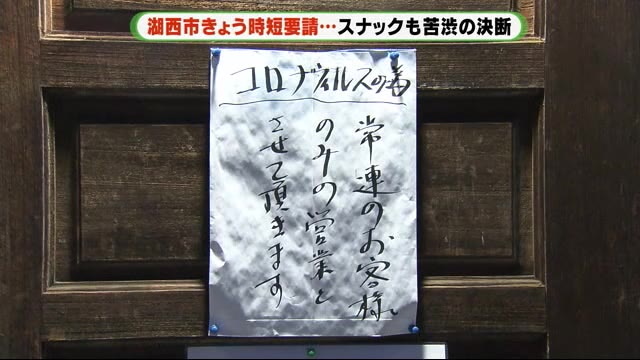 湖西市きょう時短要請…スナックも苦渋の決断
コロナヴィルスの為
常連のお客様
のみの営業と
させて頂きます